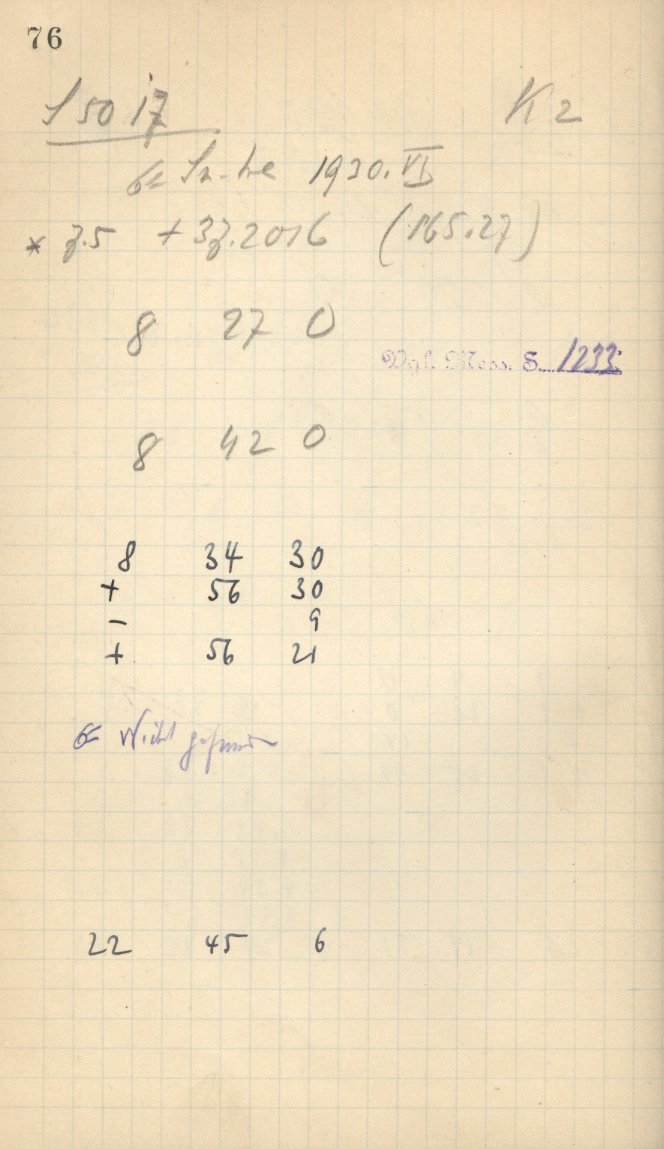 76
S 50 17 K 2
Suche 1930. VI
* 7.5 + 37.2016 (165.27)
8 27 0
Vgl. Mess. S. 1233
8 42 0
8 34 30
+ 56 30
- 9
+ 56 21
Nicht gefunden
22 45 6